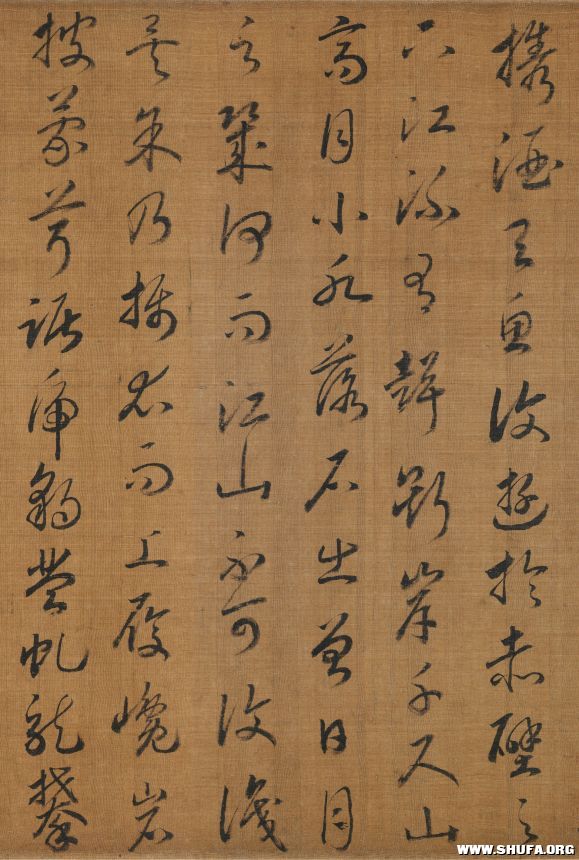 攜酒與魚復遊於赤壁之
下江流有聲斷岸千尺山
高月小水落石出曾日月
之幾何而江山不可復識
矣余乃攝衣而上履巉岩
披蒙茸踞虎豹登虬龍攀
WWW.SHUFA.ORG